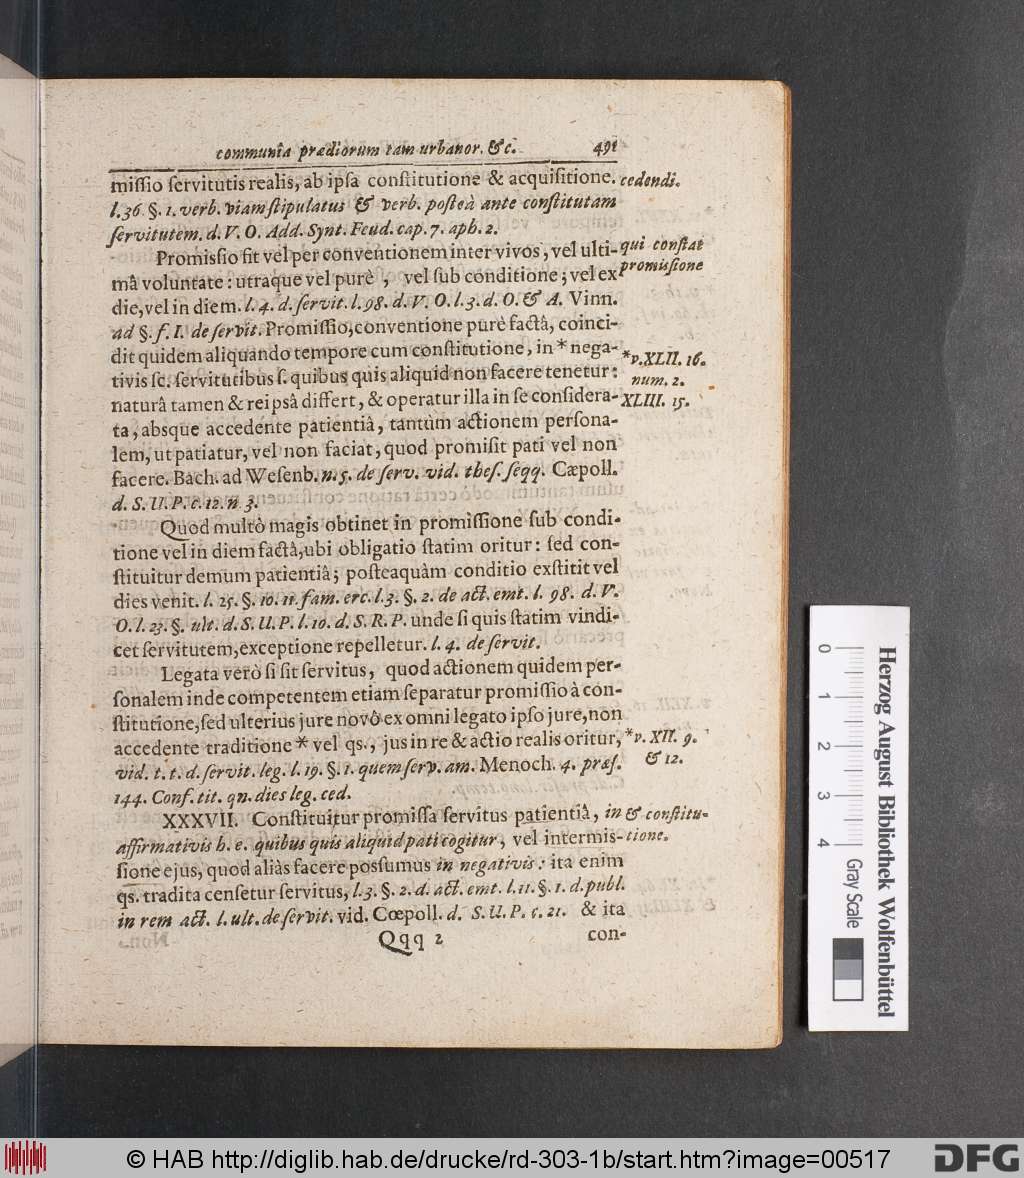 communia prædiorum tam urbanor. &c. 491
missio servitutis realis, ab ipsa constitutione & acquisitione. cedendi.
l. 36 §. 1. verb. viam stipulatus & verb. posteà ante constitutam
servitutem. d. V. O. Add. Synt. Feud. cap. 7. aph. 2.
Promissio fit vel per conventionem inter vivos, vel ulti- qui constat
mâ voluntate: utraque vel purè , vel sub conditione; vel ex promissione
die, vel in diem. l. 4. d. servit. l. 98. d. V. O. l. 3. d. O. & A. Vinn.
ad §. f. I. de servit. Promissio, conventione purè factâ, coinci-
dit quidem aliquando tempore cum constitutione, in * nega- *v. XLII. 16.
tivis sc. servitutibus s. quibus quis aliquid non facere tenetur: num. 2.
naturâ tamen & reipsâ differt, & operatur illa in se considera- XLIII. 15.
ta, absque accedente patientiâ, tantùm actionem persona-
lem, ut patiatur, vel non faciat, quod promisit pati vel non
facere. Bach. ad Wesenb. n. 5. de serv. vid. thes. seqq. Cæpoll.
d. S. U. P. c. 12. n 3.
Quod multò magis obtinet in promissione sub condi-
tione vel in diem factâ, ubi obligatio statim oritur: sed con-
stituitur demum patientiâ; posteaquàm conditio exstitit vel
dies venit. l. 25. §. 10. 11. fam. erc. l. 3. §. 2. de act. emt. l. 98. d. V.
O. l. 23. §. ult. d. S. U. P. l. 10. d. S. R. P. unde si quis statim vindi-
cet servitutem, exceptione repelletur. l. 4. de servit.
Legata verò si sit servitus, quod actionem quidem per-
sonalem inde competentem etiam separatur promissio à con-
stitutione, sed ulterius jure novô ex omni legato ipso jure, non
accedente traditione * vel qs., jus in re & actio realis oritur, *v. XII. 9.
vid. t. t. d. servit. leg. l. 19. §. 1. quem serv. am. Menoch. 4. præs. & 12.
144. Conf. tit. qn. dies leg. ced.
XXXVII. Constituitur promissa servitus patientiâ, in & constitu-
affirmativis h. e. quibus quis aliquid pati cogitur, vel intermis- tione.
sione ejus, quod aliàs facere possumus in negativis: ita enim
qs. tradita censetur servitus, l. 3. §. 2. d. act. emt. l. 11. §. 1. d. publ.
in rem act. l. ult. de servit. vid. Cœpoll. d. S. U. P. c. 21. & ita
Qqq 2 con-
0 1 2 3 4
Gray Scale
Herzog August Bibliothek Wolfenbüttel
© HAB http://diglib.hab.de/drucke/rd-303-1b/start.htm?image=00517
DFG